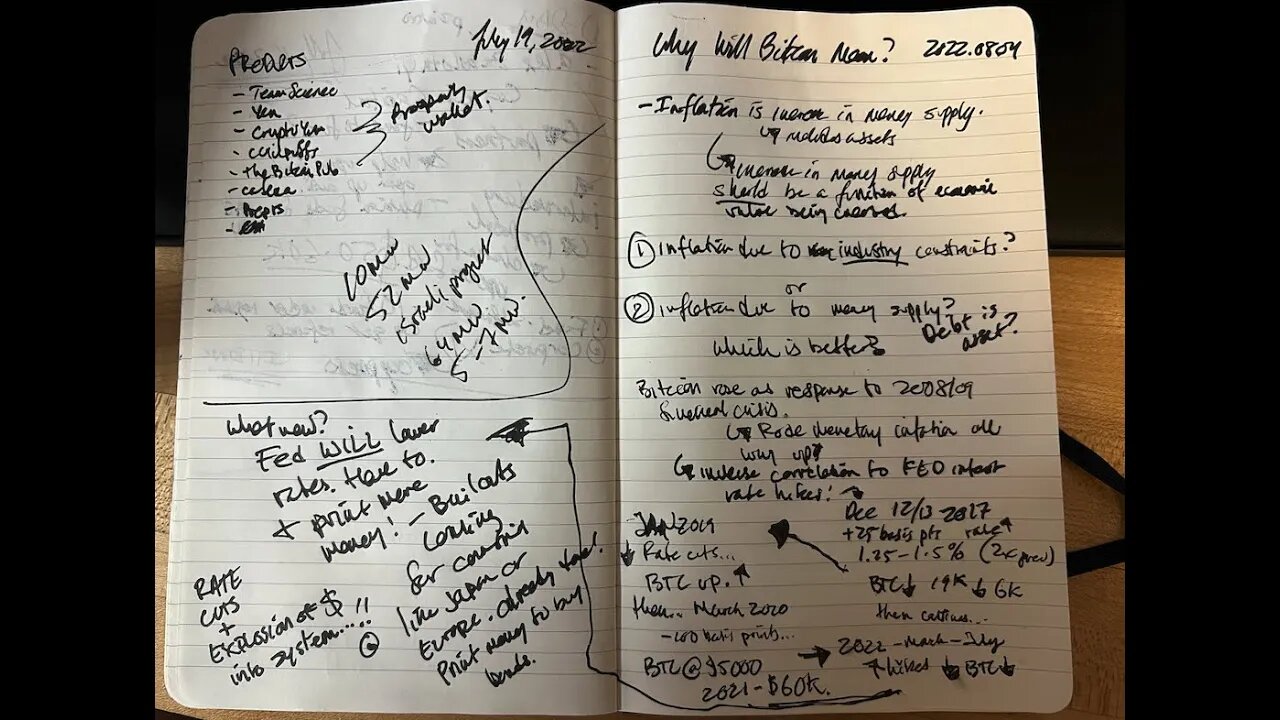 July 19, 2022
- Team Science
- Yen
- Crypto Yum
- The Bitcoin Pub
Prosperity
wallet.
10MW
52MW
israeli project
64MW
5-7MW.
What now?
Fed WILL lower
rates. Have to.
+ print more
money! - Bailouts
coming
for countries
like Japan or
Europe. already
Print money to buy
bonds.
RATE
CUTS
+
EXPLOSION of $ !!
into system.....
Why Will Bitcoin Moon? 2022.0804
- Inflation is increase in money supply.
↳ includes assets
↳ increase in money supply
should be a function of economic
value being created.
① inflation due to industry constraints?
or
② inflation due to money supply?
Debt is
asset?
Which is better?
Bitcoin rose as response to 2008/09
financial crisis.
↳ Rode monetary inflation all
way up
↳ inverse correlation to FED interest
rate hikes!
Dec 12/13 2017
+25 basis pts rate ↑
1.25-1.5% (2x prev)
BTC ↓ 19K ↓ 6K
then continues...
2022 - March - July
↑ hiked ↓ BTC ↓
JAN 2019
↓ Rate cuts...
BTC up. ↑
then.. March 2020
-100 basis points...
BTC @ $5000
2021 - $60K.